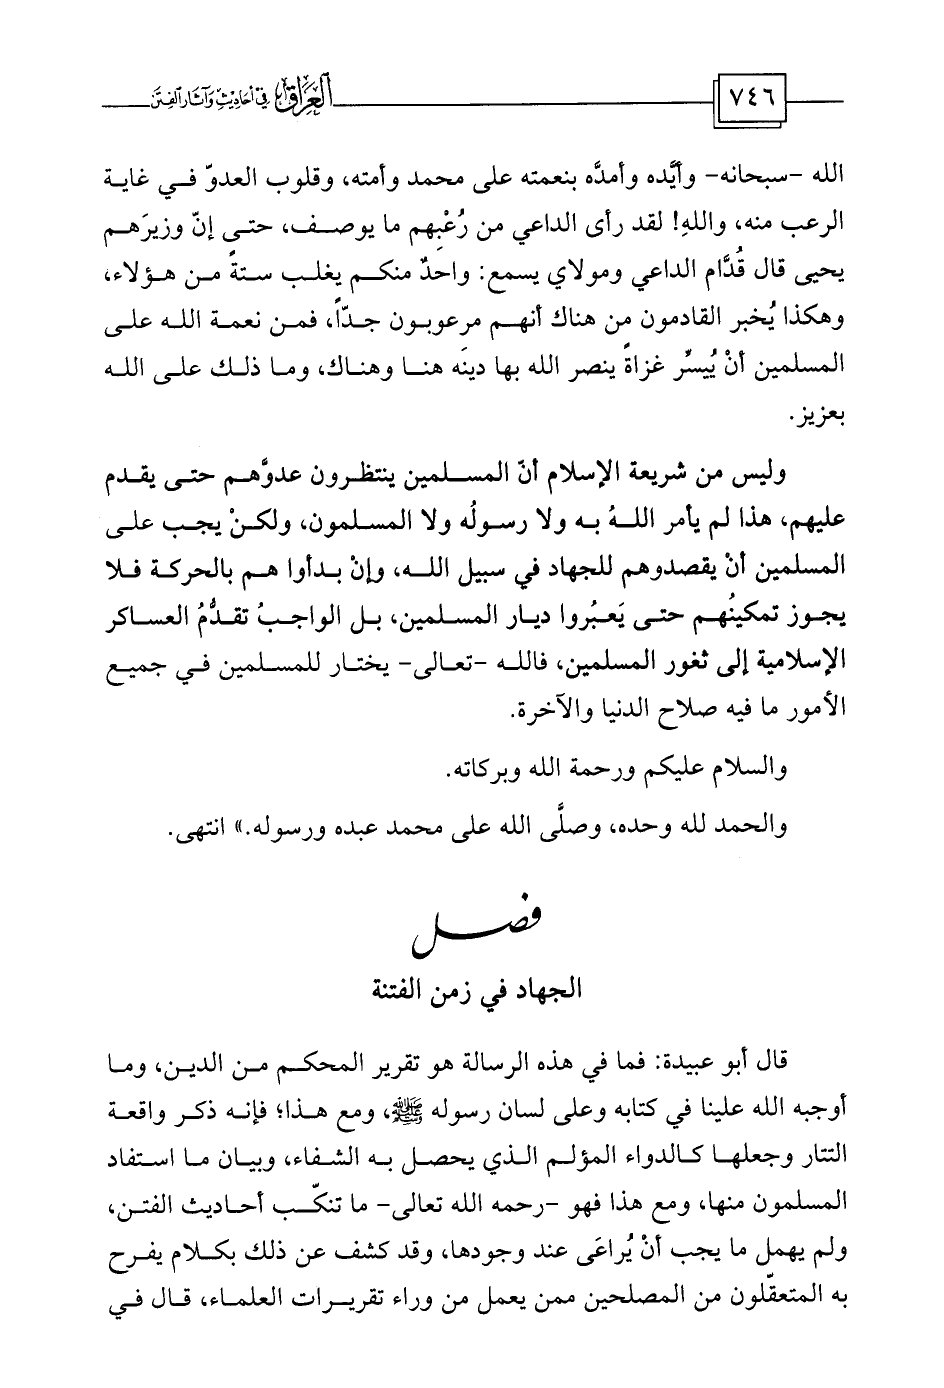 ٧٤٦
العراق في أحاديث وآثار الفتن
الله -سبحانه- وأيَّده وأمدَّه بنعمته على محمد وأمته، وقلوب العدوّ في غاية
الرعب منه، واللهِ! لقد رأى الداعي من رُعْبِهم ما يوصف، حتى إنّ وزيرَهم
يحيى قال قُدَّام الداعي ومولاي يسمع: واحدٌ منكم يغلب ستةً من هؤلاء،
وهكذا يُخبر القادمون من هناك أنهم مرعوبون جدّاً، فمن نعمة الله على
المسلمين أنْ يُيسِّر غزاةً ينصر الله بها دينَه هنا وهناك، وما ذلك على الله
بعزيز.
وليس من شريعة الإسلام أنّ المسلمين ينتظرون عدوَّهم حتى يقدم
عليهم، هذا لم يأمر اللهُ به ولا رسولُه ولا المسلمون، ولكنْ يجب على
المسلمين أنْ يقصدوهم للجهاد في سبيل الله، وإنْ بدأوا هم بالحركة فلا
يجوز تمكينُهم حتى يَعبُروا ديار المسلمين، بل الواجبُ تقدُّمُ العساكر
الإسلامية إلى ثغور المسلمين، فالله -تعالى- يختار للمسلمين في جميع
الأمور ما فيه صلاح الدنيا والآخرة.
والسلام عليكم ورحمة الله وبركاته.
والحمد لله وحده، وصلَّى الله على محمد عبده ورسوله.» انتهى.
فصل
الجهاد في زمن الفتنة
قال أبو عبيدة: فما في هذه الرسالة هو تقرير المحكم من الدين، وما
أوجبه الله علينا في كتابه وعلى لسان رسوله ﷺ، ومع هذا؛ فإنه ذكر واقعة
التتار وجعلها كالدواء المؤلم الذي يحصل به الشفاء، وبيان ما استفاد
المسلمون منها، ومع هذا فهو -رحمه الله تعالى- ما تنكّب أحاديث الفتن،
ولم يهمل ما يجب أنْ يُراعَى عند وجودها، وقد كشف عن ذلك بكلام يفرح
به المتعقّلون من المصلحين ممن يعمل من وراء تقريرات العلماء، قال في